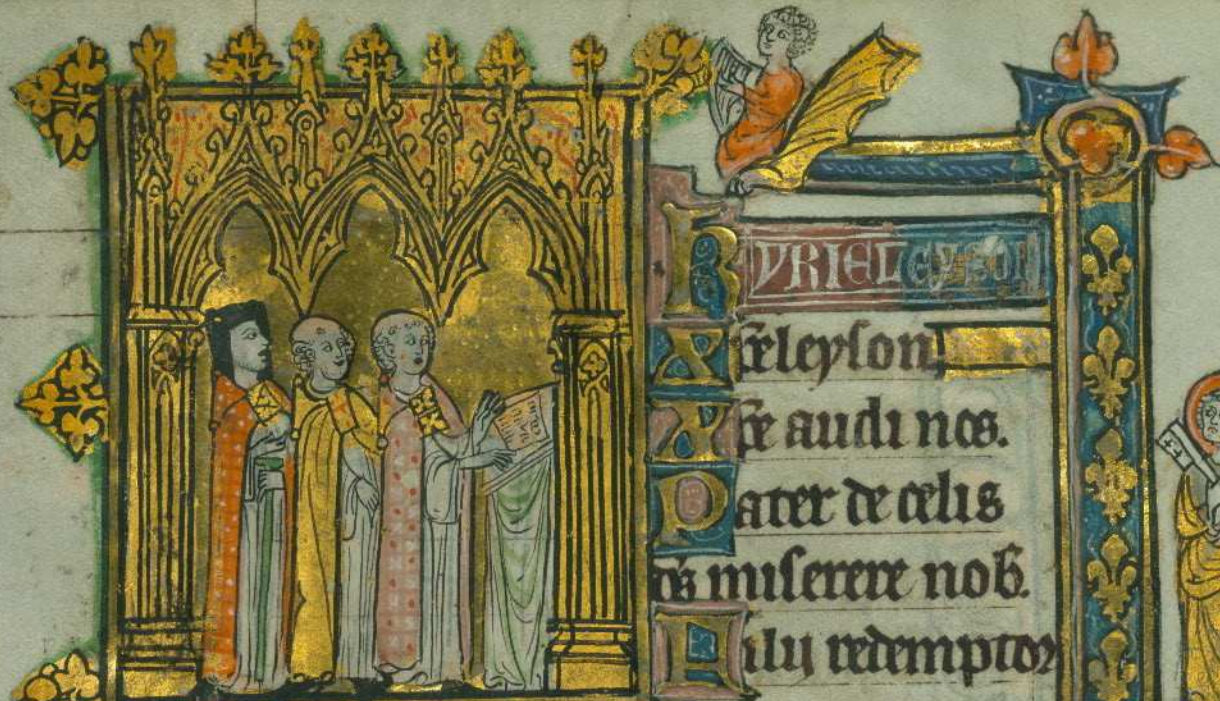 KYRIEL EYSON
Xp̄e leyson
Xp̄e audi nos.
Pater de celis
ds̄ miserere nob̄.
Filii redemptor